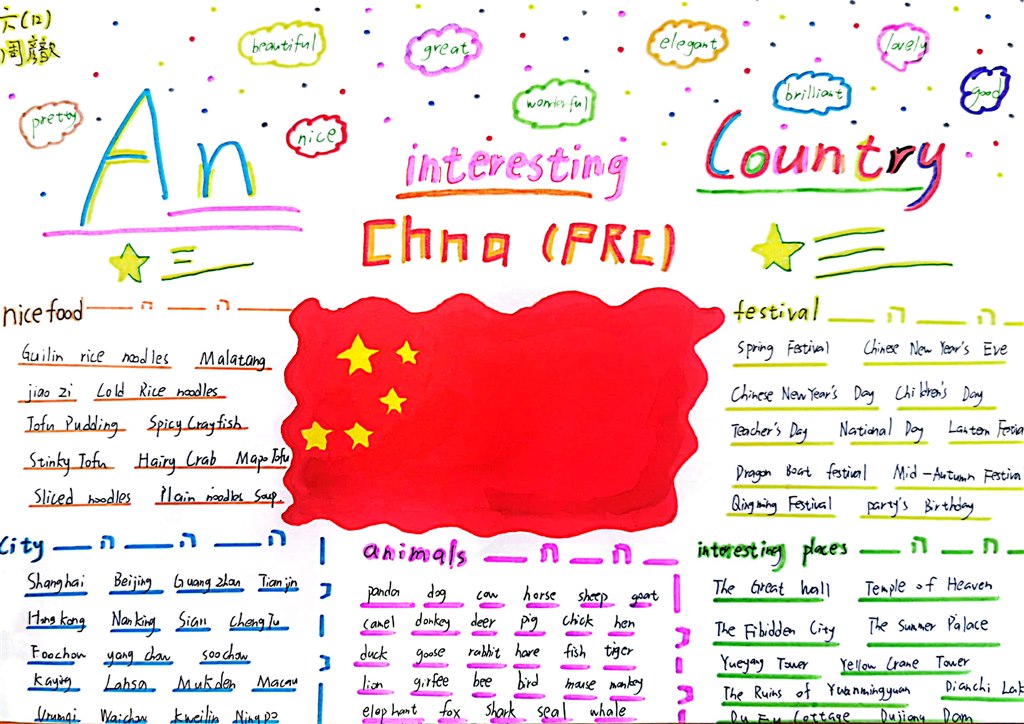 六(12)
周
beautiful
great
elegant
lovely
pretty
nice
wonderful
brilliant
good
An interesting Country
Chna (PRC)
nice food
Guilin rice noodles Malatang
jiao zi Cold Rice noodles
Tofu Pudding Spicy Crayfish
Stinky Tofu Hairy Crab Mapo Tofu
Sliced noodles Plain noodles Soup
festival
Spring Festival Chinese New Year's Eve
Chinese New Year's Day Children's Day
Teacher's Day National Day Lantern Festiva
Dragon Boat festival Mid-Autumn Festiva
Qingming Festival party's Birthday
City
Shanghai Beijing Guangzhou Tianjin
Hongkong Nanking Sian chengTu
Foochow yang chow soochow
Kaying Lahsa Mukden Macau
Urumqi Waichow kweilin Ningpo
animals
panda dog cow horse sheep goat
camel donkey deer pig chick hen
duck goose rabbit hare fish tiger
lion girfee bee bird mouse monkey
elephant fox shark seal whale
interesting places
The Great wall Temple of Heaven
The Fibidden City The Summer Palace
Yueyang Tower Yellow Crane Tower
The Ruins of Yuanmingyuan Dianchi Lak
Du Fu Cottage Dujiang Dam